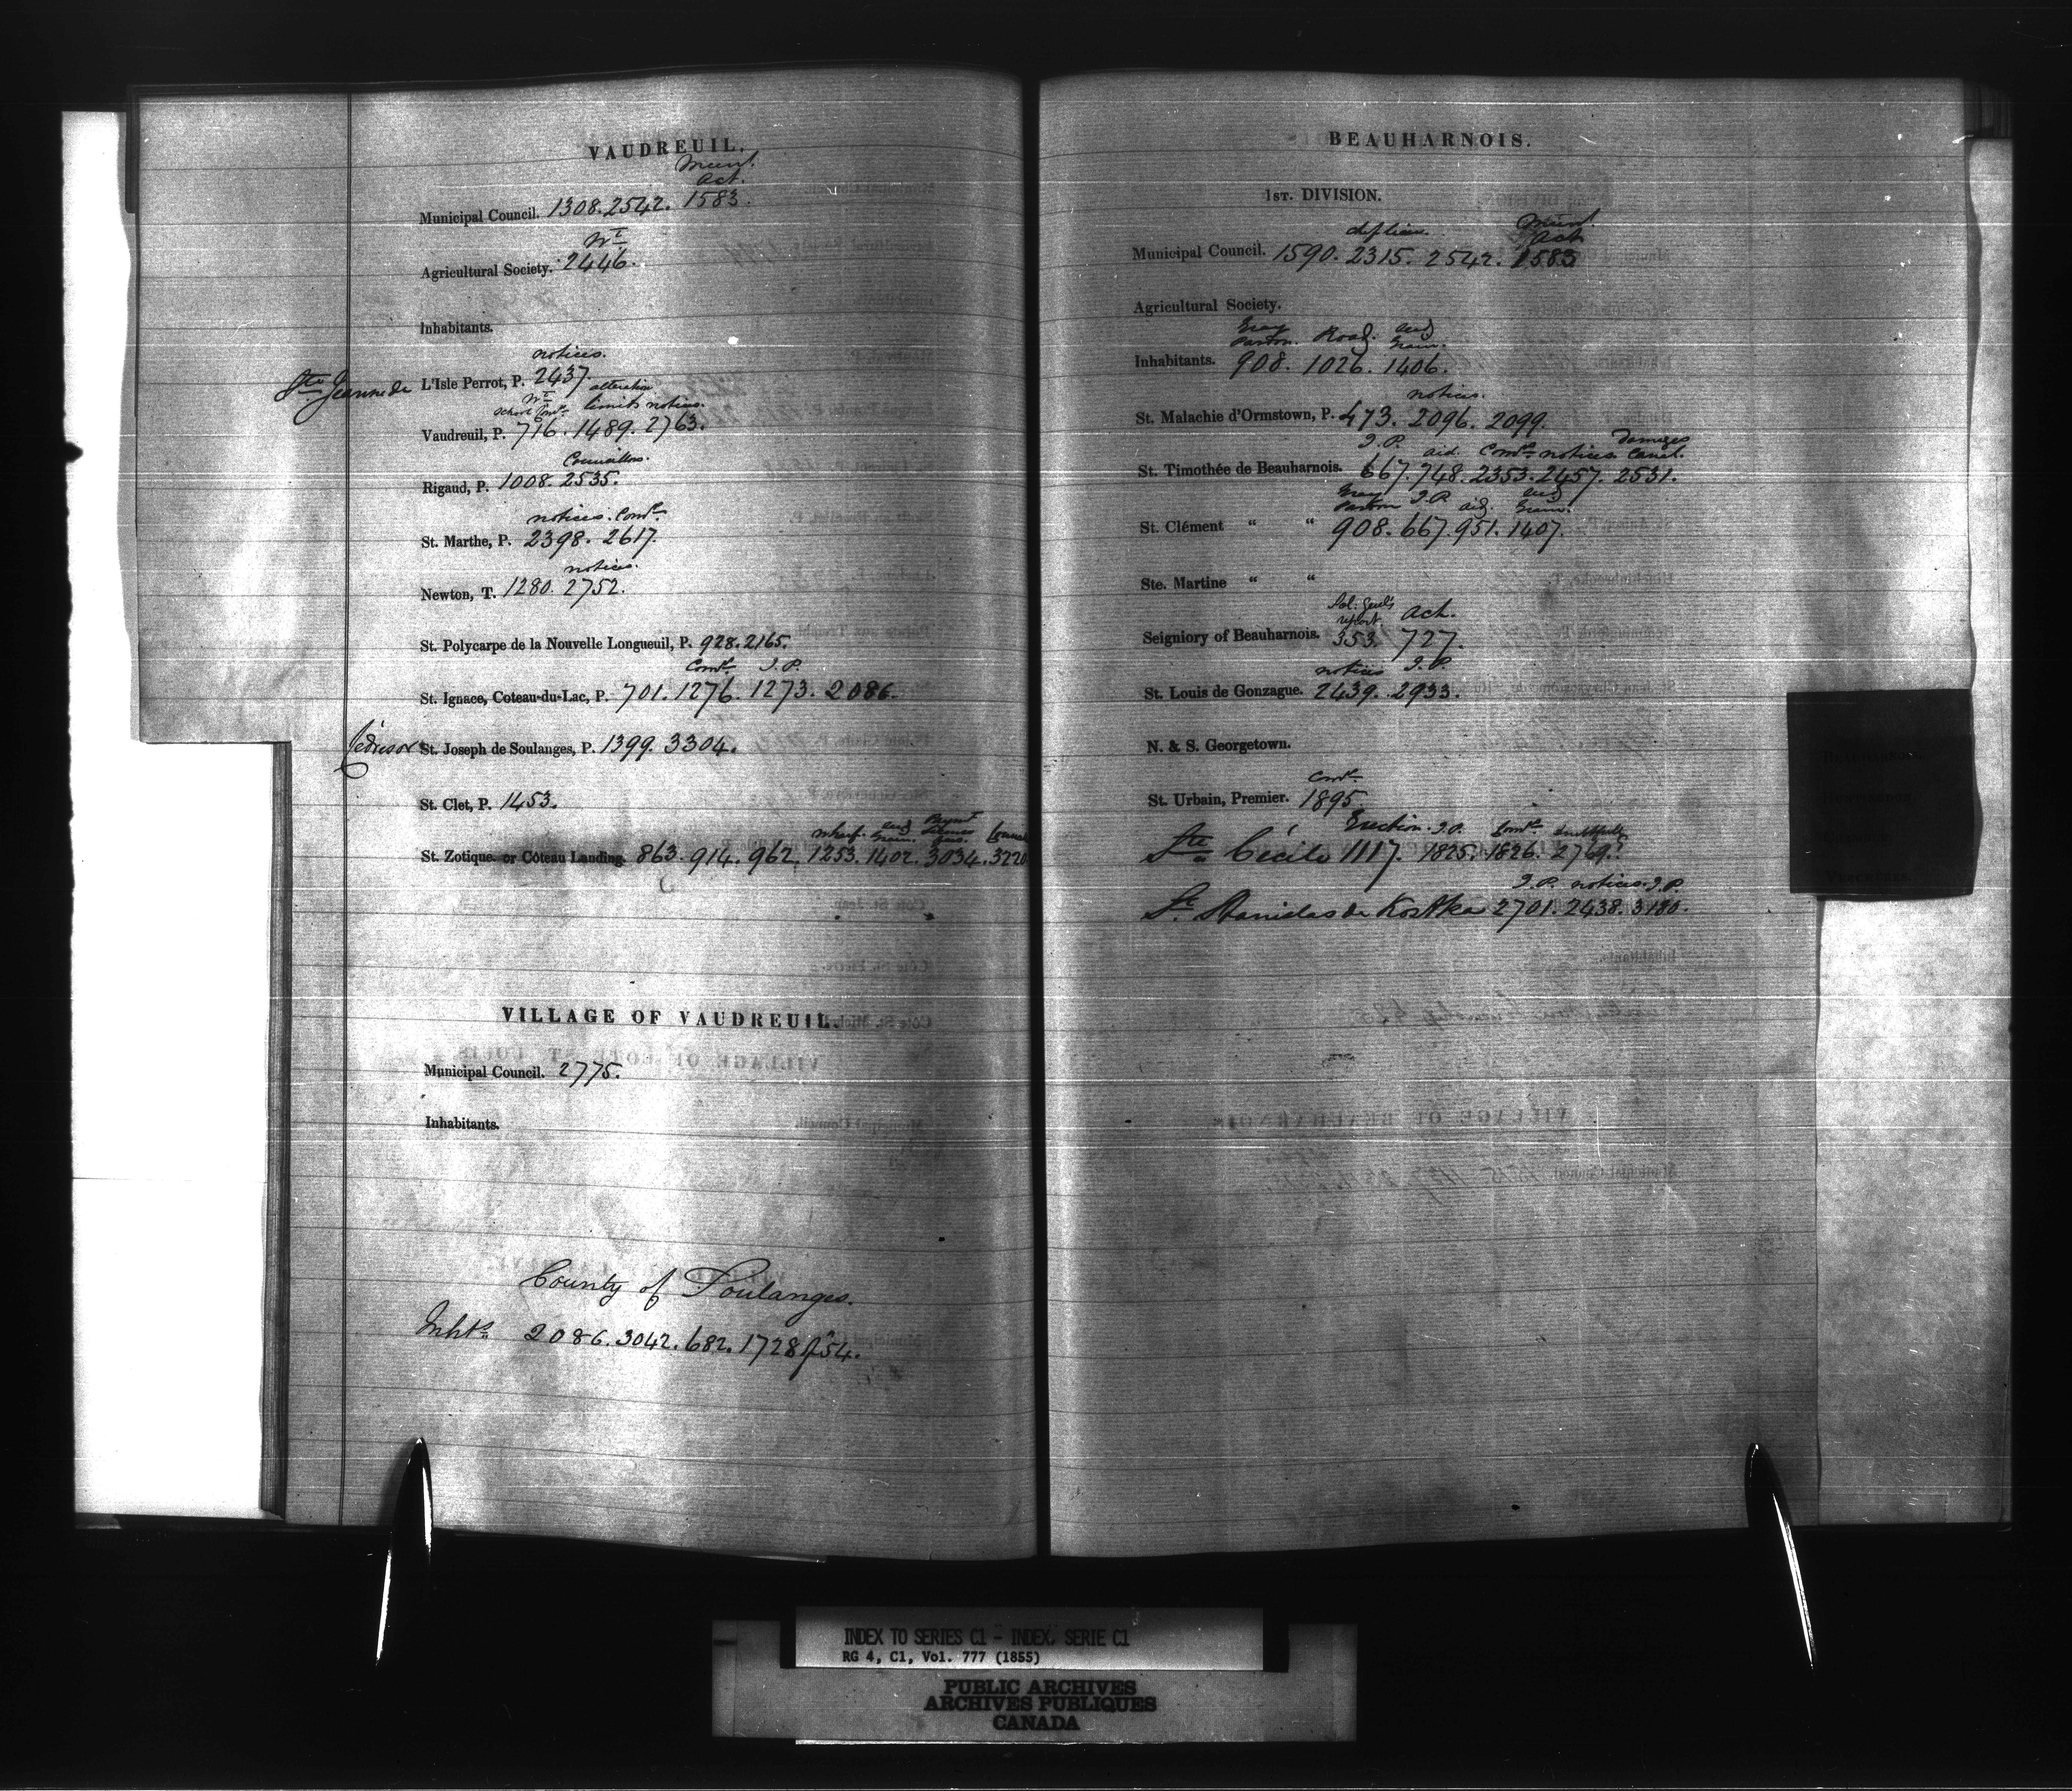 VAUDREUIL.
Munl.
Act.
Municipal Council. 1308. 2542. 1583.
Wt
Agricultural Society. 2446.
Inhabitants.
notices.
Ste Jeanne de L'Isle Perrot, P. 2437.
alteration
Wt limits notices.
School Comrs
Vaudreuil, P. 716. 1489. 2763.
Councillors.
Rigaud, P. 1008. 2535.
notices. Comrs
St. Marthe, P. 2398. 2617.
notices.
Newton, T. 1280. 2752.
St. Polycarpe de la Nouvelle Longueuil, P. 928. 2165.
Comrs J.P.
St. Ignace, Coteau-du-Lac, P. 701. 1276. 1273. 2086.
Cédres or St. Joseph de Soulanges, P. 1399. 3304.
St. Clet, P. 1453.
wharf. aud
St. Zotique or Côteau Landing. 863. 914. 962. 1253. 1402. 3034. 3220
VILLAGE OF VAUDREUIL.
Municipal Council. 2775.
Inhabitants.
County of Soulanges.
Inhts 2086. 3042. 682. 1728 of 54.
BEAUHARNOIS.
1ST. DIVISION.
Munl
Act
Municipal Council. 1590. 2315. 2542. 1583
Agricultural Society.
Gray Road. aud
Inhabitants. 908. 1026. 1406.
notices.
St. Malachie d'Ormstown, P. 473. 2096. 2099.
J.P. aid. Comrs notices damages Canal.
St. Timothée de Beauharnois. 667. 748. 2353. 2457. 2531.
Gray J.P. aid. aud
St. Clément “ “ 908. 667. 951. 1407.
Ste. Martine “ “
Sol: Genl's report. Act.
Seigniory of Beauharnois. 353. 727.
notices J.P.
St. Louis de Gonzague. 2439. 2933.
N. & S. Georgetown.
Comrs
St. Urbain, Premier. 1895.
Erection. J.P. Comrs doubtfully
Ste Cécile 1117. 1825. 1826. 2769?
J.P. notices. J.P.
St. Stanislas de Kostka 2701. 2438. 3180.
INDEX TO SERIES C1 - INDEX, SERIE C1
RG 4, C1, Vol. 777 (1855)
PUBLIC ARCHIVES
ARCHIVES PUBLIQUES
CANADA